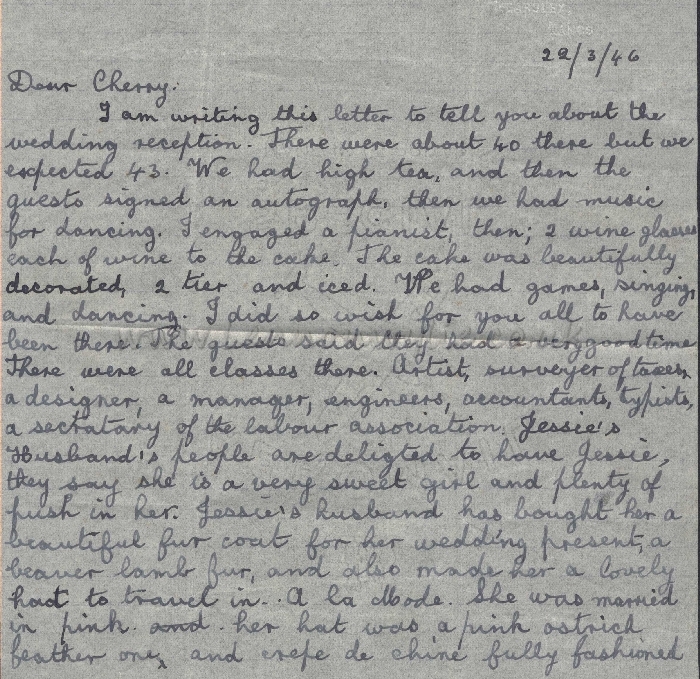 22/3/46
Dear Cherry:
I am writing this letter to tell you about the
wedding reception. There were about 40 there but we
expected 43. We had high tea, and then the
guests signed an autograph, then we had music
for dancing. I engaged a pianist, then; 2 wine glasses
each of wine to the cake. The cake was beautifully
decorated, 2 tier and iced. We had games, singing,
and dancing. I did so wish for you all to have
been there. The guests said they had a very good time
There were all classes there. Artist, surveyer of taxes,
a designer, a manager, engineers, accountants, typists,
a secratary of the labour association. Jessie's
Husband's people are deligted to have Jessie,
they say she is a very sweet girl and plenty of
push in her. Jessie's husband has bought her a
beautiful fur coat for her wedding present, a
beaver lamb fur, and also made her a lovely
hat to travel in. A la Mode. She was married
in pink. and her hat was a pink ostrich
feather one, and crepe de chine fully fashioned